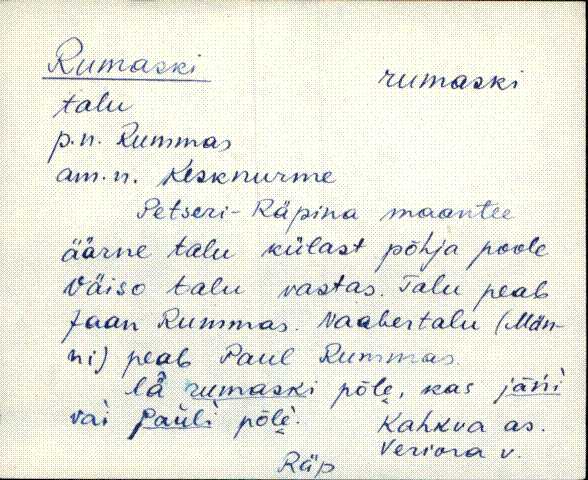 Rumaski rumaski
talu
p.n. Rummas
am.n. Kesknurme
Petseri-Räpina maantee
äärne talu külast põhja poole
Väiso talu vastas. Talu peab
Jaan Rummas. Naabertalu (Män-
ni) peab Paul Rummas.
rumaski põle, kas
vai põle.
Kahkva as.
Veriora v.
Räp